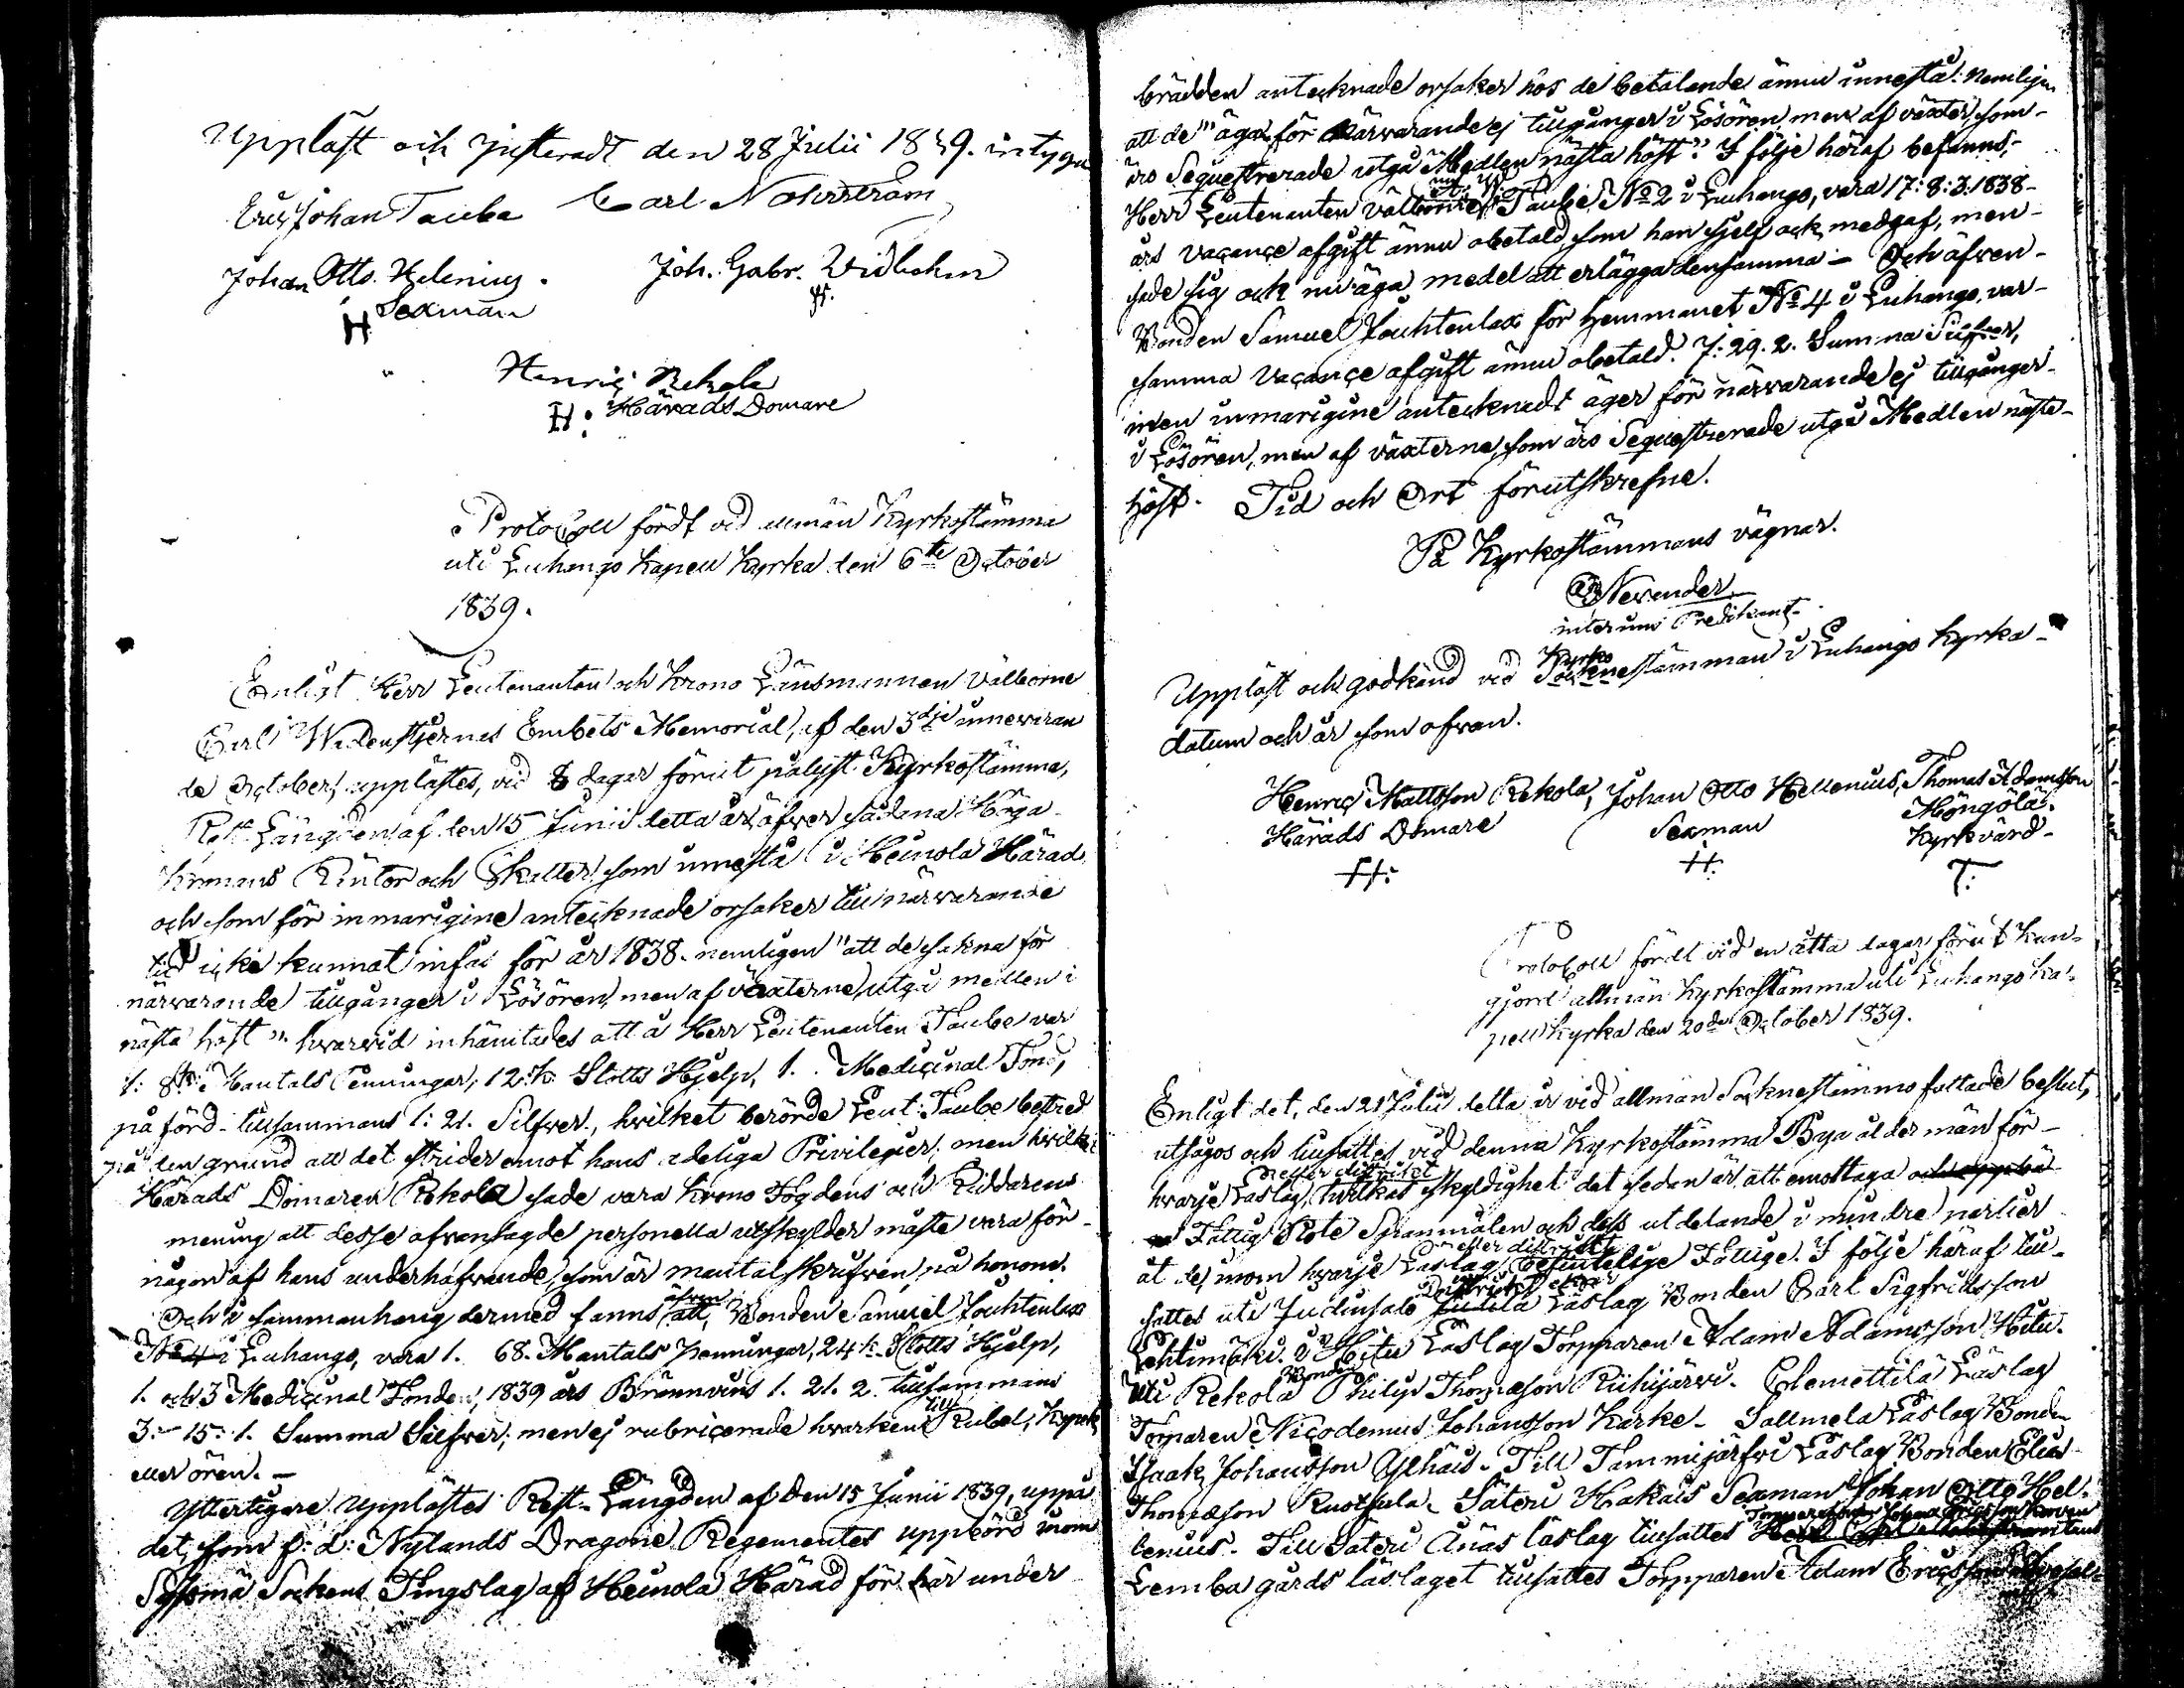 Uppläst och justeradt den 28 Julii 1839. intyga
Eric Johan Taube Carl Nohrström
Johan Otto Helenius. Joh. Gabr. Widbohm
Sexman
H
Henric Rekola
H: Härads Domare
Protocoll fördt vid allmän Kyrkostämma
uti Luhango Kapell Kyrka den 6te October
1839.
Enligt Herr Leutenanten och Krono Länsmannen Välborne
Carl Wadenstjernas Embets Memorial, af den 3dje innevaran
de October, upplästes, vid 8 dagar förut pålyst Kyrkostämma,
Rest Längden af den 15 Junii detta år, öfver sådana Höga
Kronans Räntor och Skatter som innestå i Heinola Härad
och som för in marigine antecknade orsaker till närvarande
tid icke kunnat infås för år 1838. nemligen "att de sakna för
närvarande tillgånger i Lösören, men af växterne utgå medlen i
nästa höst". hvarvid inhämtades att å Herr Leutenanten Taube var
1: 8 k: Mantals Penningar, 12 k: Slotts Hjelp, 1. Medicinal Fond,
på förd tillsammans 1: 21. Silfver, hvilket berörde Leut: Taube bestred
på den grund att det strider emot hans adeliga Privilegier; men hvilka
Härads Domaren Rekola sade vara Krono Fogdens och Riddarens
mening att desse ofvansagde personella utskylder måste vara för
någon af hans underhafvande, som är mantalskrifven på honom.
Och i sammanhang dermed fanns äfven att, Bonden Samuel Jouhtenlax
No 4 i Luhango, vara 1. 68. Mantals penningar, 24 k. Slotts Hjelp,
1. och 3 Medicinal Fonden, 1839 års Brännvins 1. 21. 2. tillsammans
3:- 15: 1. Summa Silfver; men ej rubricerade hvarken till Rubel, Kopek
eller ören. -
Ytterligare upplästes Rest-Längden af den 15 Junii 1839, uppå
det, som f: d: Nylands Dragone Regementes uppbörd inom
Sysmä Sockens Tingslag af Heinola Härad för här under
brädden antecknade orsaker hos de betalande ännu innestå: nemligen
att de "äga för närvarande ej tillgånger i Lösören men af växter, som
äro Sequestrerade utgå Medlen nästa höst". I följe häraf befanns,
Herr Leutenanten Välborne Taube No 2 i Luhango, vara 17: 8: 3. 1838
års vacance afgift ännu obetald, som han sjelf ock medgaf, men
sade sig ock nu äga medel att erlägga densamma - Och äfven
Bonden Samuel Jouhtenlax för Hemmanet No 4 i Luhango, var
samma vacance afgift ännu obetald. 7: 29. 2. Summa Silfver,
men in marigine antecknadt äger för närvarande ej tillgånger
i Lösören, men af växterne, som äro Sequestrerade utgå Medlen nästa
höst. Tid och Ort förutskrefne.
På Kyrkostämmans vägnar.
Nevander
interims Predikant
Uppläst och godkänd vid Kyrko Sockenestämman i Luhango Kyrka
datum och år som ofvan.
Henric Mattsson Rekola, Johan Otto Hellenius, Thomas Adamsson
Härads Domare Sexman Höngölä.
Kyrkvärd
H: H: T:
Protocoll fördt vid en åtta dagar förut kun-
gjord allmän Kyrkostämma uti Luhango Ka-
pell Kyrka den 20de October 1839.
Enligt det, den 21 Julii detta år vid allmän Socknestämma fattade beslut,
utsågos och tillsattes vid denna Kyrkostämma Bya ålder män för
eller district
hvarje Läslag, hvilkas skyldighet det sedan är att emottaga och uppbä
ra Fattig Rote Spannmålen och dess utdelande i mindre partier
eller district
åt de, inom hvarje Läslag befintelige Fattige. I följe häraf till-
sattes uti Judinsalo Läslag Bonden Carl Sigfridsson
Lehtimäki. i Hitu Läslag Torpparen Adam Adamsson Hitu.
Bonden
uti Rekola Philip Thomasson Riihijärvi. Clemettilä Läslag
Torparen Nicodemus Johansson Karke. Sallmela Läslag Bonden
Isaak Johansson Ylhäis. Till Tammijärfvi Läslag Bonden Elias
Thomasson Ruotsula. Säteri Hakais Sexman Johan Otto Hel-
lenius. Till Säteri Ånäs läslag tillsattes
Lemba gårds läslaget tillsattes Torpparen Adam Ericsson